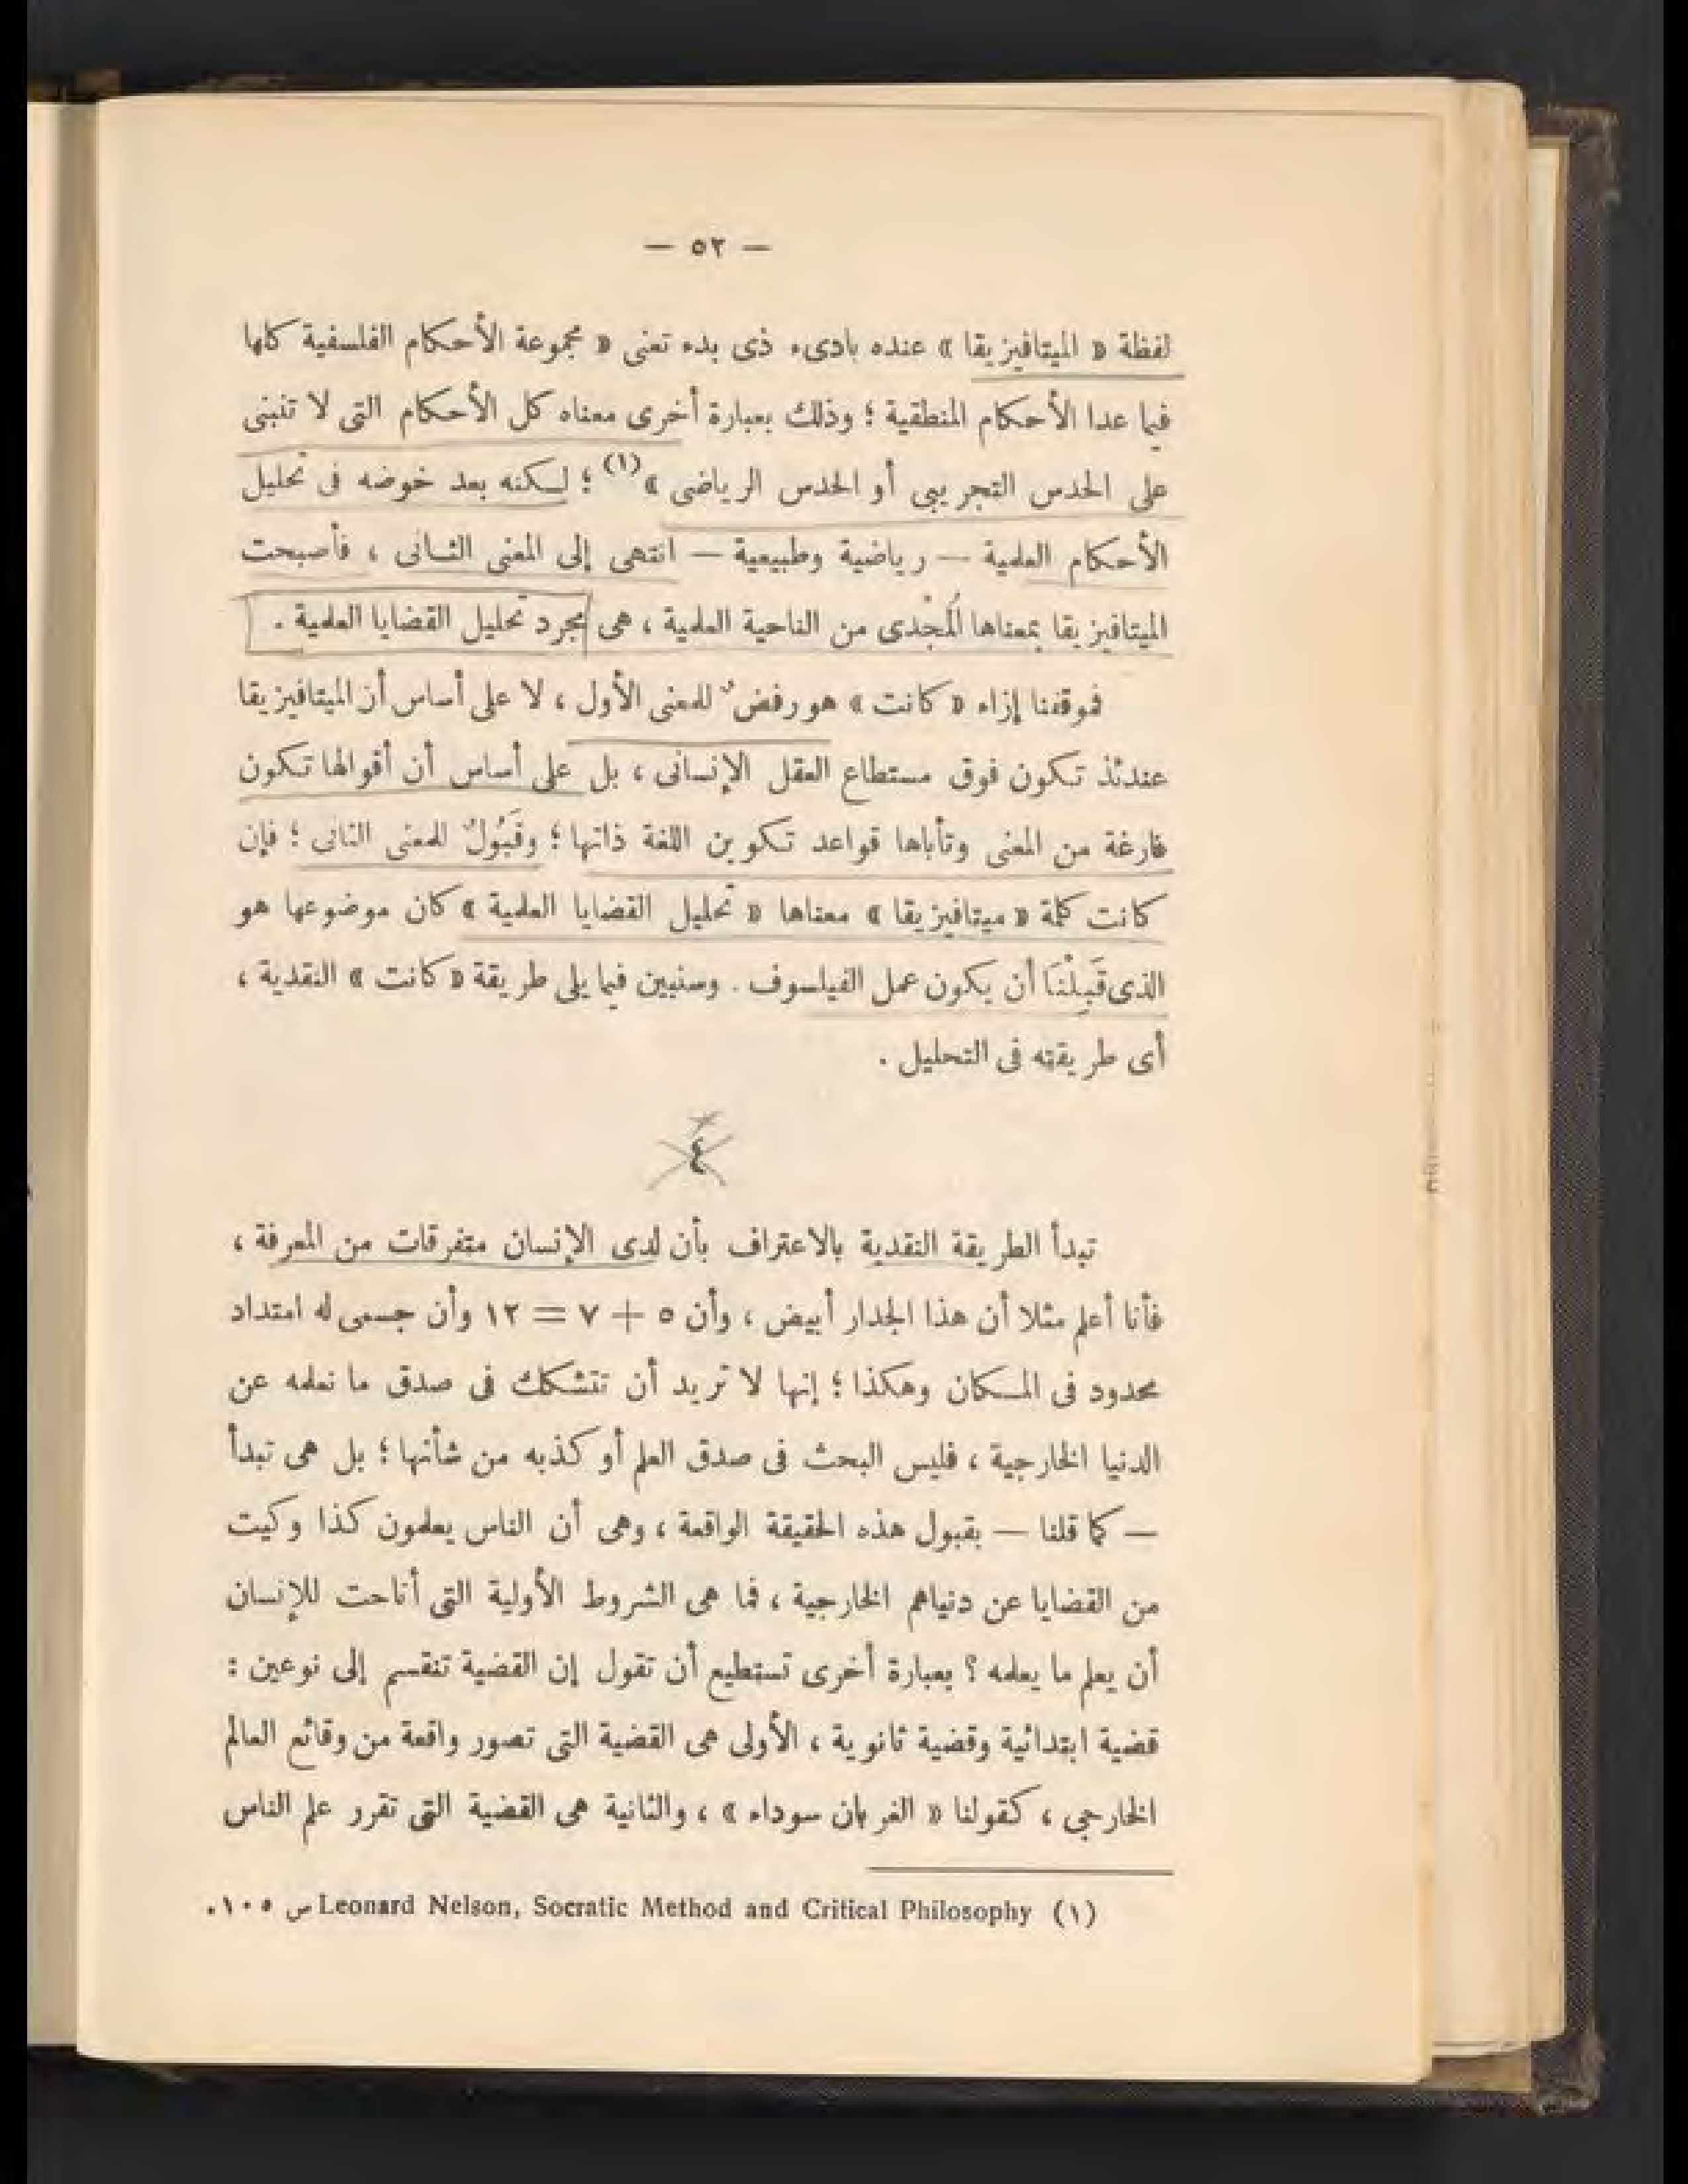 — ٥٢ —
لفظة « الميتافيزيقا » عنده بادىء ذى بدء تعنى « مجموعة الأحكام الفلسفية كلها
فيما عدا الأحكام المنطقية ؛ وذلك بعبارة أخرى معناه كل الأحكام التى لا تنبنى
على الحدس التجريبى أو الحدس الرياضى »(١) ؛ لكنه بعد خوضه فى تحليل
الأحكام العلمية — رياضية وطبيعية — انتهى إلى المعنى الثانى ، فأصبحت
الميتافيزيقا بمعناها الُمجْدى من الناحية العلمية ، هى مجرد تحليل القضايا العلمية .
فموقفنا إزاء « كانت » هو رفضٌ للمعنى الأول ، لا على أساس أن الميتافيزيقا
عندئذ تكون فوق مستطاع العقل الإنسانى ، بل على أساس أن أقوالها تكون
فارغة من المعنى وتأباها قواعد تكوين اللغة ذاتها ؛ وقَبُولٌ للمعنى الثانى ؛ فإن
كانت كلمة « ميتافيزيقا » معناها « تحليل القضايا العلمية » كان موضوعها هو
الذى قَبِلْنَا أن يكون عمل الفيلسوف . وسنبين فيما يلى طريقة « كانت » النقدية ،
أى طريقته فى التحليل .
٤
تبدأ الطريقة النقدية بالاعتراف بأن لدى الإنسان متفرقات من المعرفة ،
فأنا أعلم مثلا أن هذا الجدار أبيض ، وأن ٥ + ٧ = ١٢ وأن جسمى له امتداد
محدود فى المكان وهكذا ؛ إنها لا تريد أن تتشكك فى صدق ما نعلمه عن
الدنيا الخارجية ، فليس البحث فى صدق العلم أو كذبه من شأنها ؛ بل هى تبدأ
— كما قلنا — بقبول هذه الحقيقة الواقعة ، وهى أن الناس يعلمون كذا وكيت
من القضايا عن دنياهم الخارجية ، فما هى الشروط الأولية التى أتاحت للإنسان
أن يعلم ما يعلمه ؟ بعبارة أخرى تستطيع أن تقول إن القضية تنقسم إلى نوعين :
قضية ابتدائية وقضية ثانوية ، الأولى هى القضية التى تصور واقعة من وقائع العالم
الخارجى ، كقولنا « الغربان سوداء » ، والثانية هى القضية التى تقرر علم الناس
(١) Leonard Nelson, Socratic Method and Critical Philosophy ص ١٠٥.